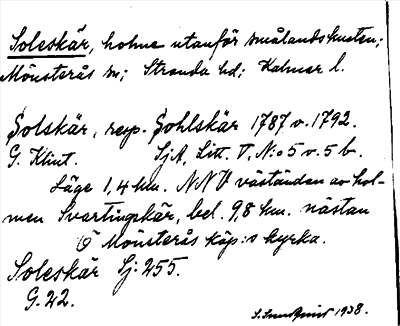 Soleskär, holme utanför smålandskusten;
Mönsterås sn; Stranda hd; Kalmar l.
Solskär, resp. Sohlskär 1787 o. 1792.
G. Klint. SjA, Litt. V, N:o 5 o. 5 b.
Läge 1,4 km. NNV väständen av hol-
men Svartingskär, bel. 9,8 km. nästan
Ö Mönsterås köp:s kyrka.
Soleskär Sj: 255.
G. 22.
1938.